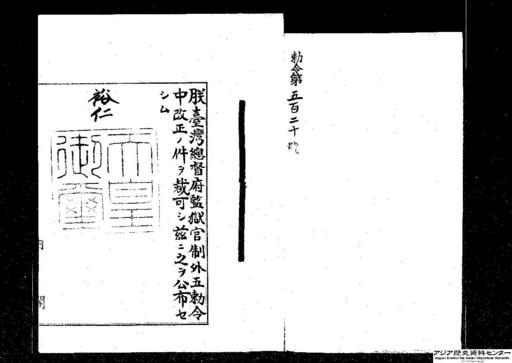 勅令第五百二十號
朕臺灣總督府監獄官制外五勅令
中改正ノ件ヲ裁可シ茲ニ之ヲ公布セ
シム
裕仁
天皇
御璽
内閣
アジア歴史資料センター
Japan Center for Asian Historical Records